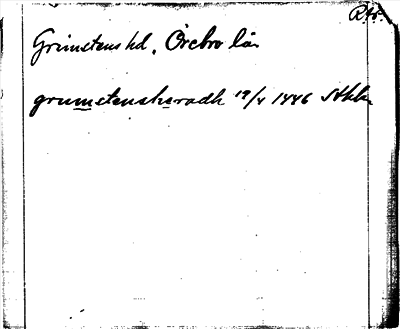 RAp.
Grimstens hd, Örebro län
grumstensheradh 19/4 1446 Sthlm